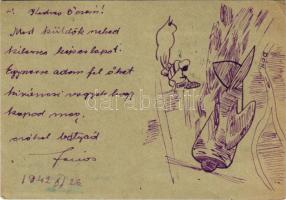 Kedves Öcsém!
Most küldök neked
kilenc képeslapot.
Egyszerre adom fel őket
kíváncsi vagyok hogy
kapod meg.
csókol bátyád
Jenos
1942 XI 26